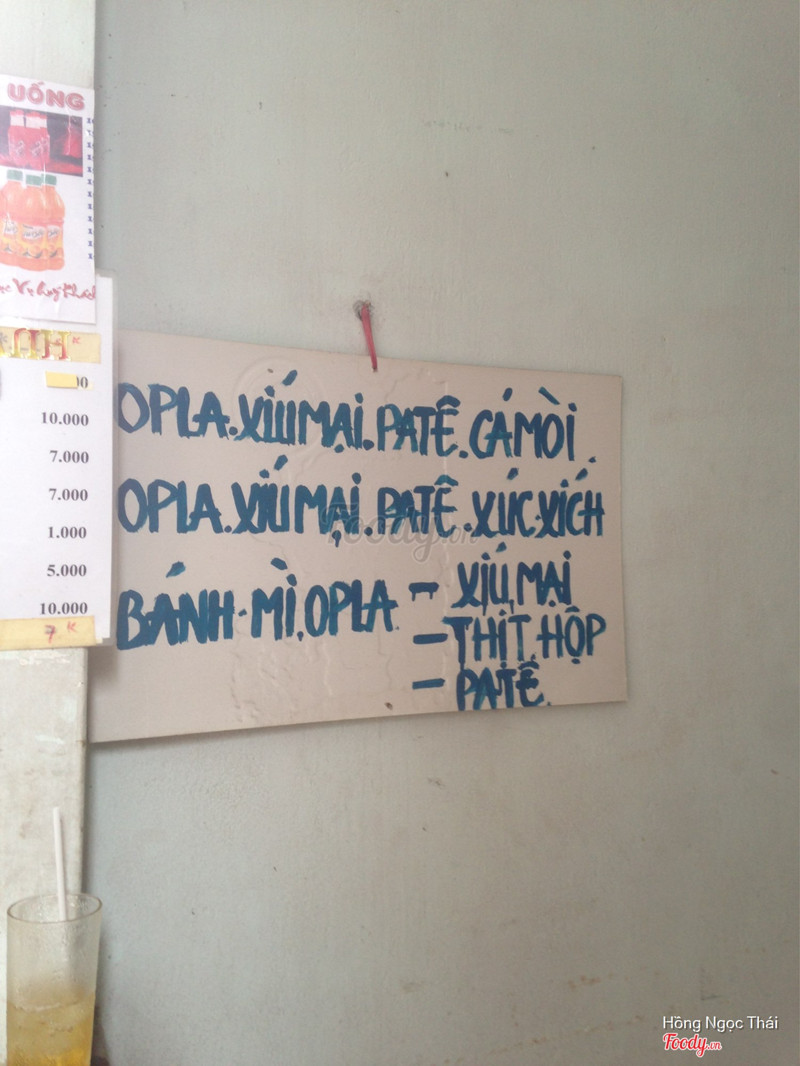 UỐNG
10.000
7.000
7.000
1.000
5.000
10.000
7 K
OPLA.XÍUMẠI.PATÊ.CÁMÒI
OPLA.XÍUMẠI.PATÊ.XÚC.XÍCH
BÁNH.MÌ.OPLA - XÍU,MẠI
- THỊT HỘP
- PATÊ.
Foody.vn
Hồng Ngọc Thái
Foody.vn